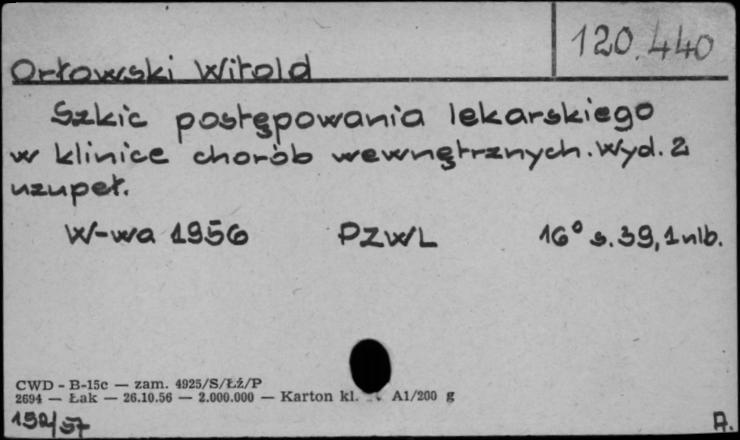 120.440
Orłowski Witold
Szkic postępowania lekarskiego
w klinice chorób wewnętrznych. Wyd. 2
uzupeł.
W-wa 1956 PZWL 16° s. 39, 1 nlb.
CWD - B-15c — zam. 4925/S/Łź/P
2694 — Łak — 26.10.56 — 2.000.000 — Karton kl. A1/200 g
192/57 A.